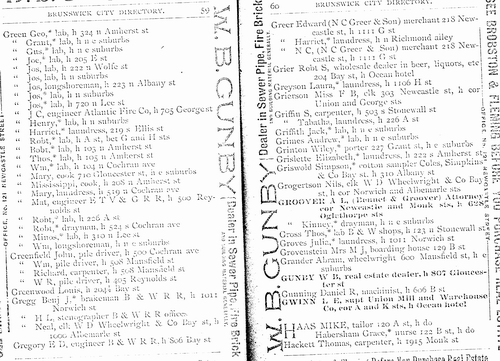 BRUNSWICK CITY DIRECTORY. 59
Green Geo,* lab, h 324 n Amherst st
" Grant,* lab, h n e suburbs
" Gus,* lab, h n e suburbs
" Joe,* lab, h 205 E st
" Joe,* lab, h 222 n Wolfe st
" Jos, lab, h n suburbs
" Jos, longshoreman, h 223 n Albany st
" Jos,* lab, h n e suburbs
" Jos,* lab, h 720 n Lee st
" J C, engineer Atlantic Fire Co, h 705 George st
" Henry,* lab, h n suburbs
" Harriet,* laundress, 219 s Ellis st
" Robt,* lab, A st, bet G and H sts
" Robt,* lab, h 103 n Amherst st
" Thos,* lab, h 105 n Amherst st
" Wm,* lab, h 104 n Cochran ave
" Mary, cook 710 Gloucester st, n e suburbs
" Mississippi, cook, h 208 n Amherst st
" Mary, laundress, h 519 n Cochran ave
" Mat, engineer E T V & G R R, h 500 Reynolds st
" Robt,* lab, h 226 A st
" Robt,* drayman, h 524 s Cochran ave
" Minos,* lab, h 310 n Lee st
" Wm, longshoreman, h n e suburbs
Greenfield John, pile driver, h 500 Cochran ave
" Wm, pile driver, h 508 Mansfield st
" Richard, carpenter, h 508 Mansfield st
" W R, pile driver, h 505 Reynolds st
Greenwood Louis, h 204½ Bay st
Gregg Benj J,* brakeman B & W R R, h 1011
Norwich st
" H L, stenographer B & W R R offices
" Neal, elk W D Wheelwright & Co Bay st, h
1000 Albemarle st
Gregory E D, engineer B & W R R, h 806 Bay st
W. B. GUNBY
Dealer in Sewer Pipe, Fire Brick
60 BRUNSWICK CITY DIRECTORY.
Greer Edward (N C Greer & Son) merchant 218 Newcastle st, h 1111 G st
" Harriet,* laundress, h n Richmond alley
" N C, (N C Greer & Son) merchant 218 Newcastle st, h 1111 G st
Grier Robt S, wholesale dealer in beer, liquors, etc
204 Bay st, h Ocean hotel
Greyson Laura,* laundress, h 1106 H st
Grierson Miss F B, elk 303 Newcastle st, h cor
Union and George sts
Griffin S, carpenter, h 503 s Stonewall st
" Tabatha, laundress, h 226 A st
Griffith Jack,* lab, h n e suburbs
Grimes Andrew,* lab, h n e suburbs
Grinton Wiley,* porter 227 Grant st, h e suburbs
Grislette Elizabeth,* laundress, h 222 n Amherst st
Griswold Simpson,* cotton sampler Coles, Simpkins
& Co Bay st, h 310 Albany st
Grogertson Nils, elk W D Wheelwright & Co Bay
st, h cor Norwich and Albemarle sts
GROOVER A L, (Bennet & Groover) Attorney
cor Newcastle and Monk sts, h G, cor
Oglethorpe sts
" Kinney,* drayman, h n e suburbs
Gross Thos,* lab E & W shops, h 123 n Stonewall st
Groves Julia,* laundress, h 1011 Norwich st
Grovenstein Mrs M J, boarding house 129 B st
Grunder Abram, wheelwright 600 Mansfield st, h
suburbs
GUNBY W B, real estate dealer, h 807 Gloucester st
Gunning Daniel R, machinist, h 606 B st
GWINN L E, supt Union Mill and Warehouse
Co, cor A and K sts, h Ocean hotel
HAAS MIKE, tailor 120 A st, h do
Habersham Grace,* nurse 122 B st, h do
Hackett Thomas, carpenter, h 1915 Monk st
W. B. GUNBY
Dealer in Sewer Pipe, Fire Brick